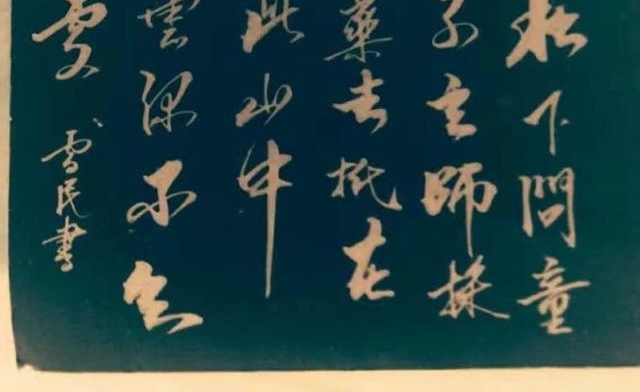 松下問童
子言師採
藥去秖在
此山中
雲深不知
處
雪民書